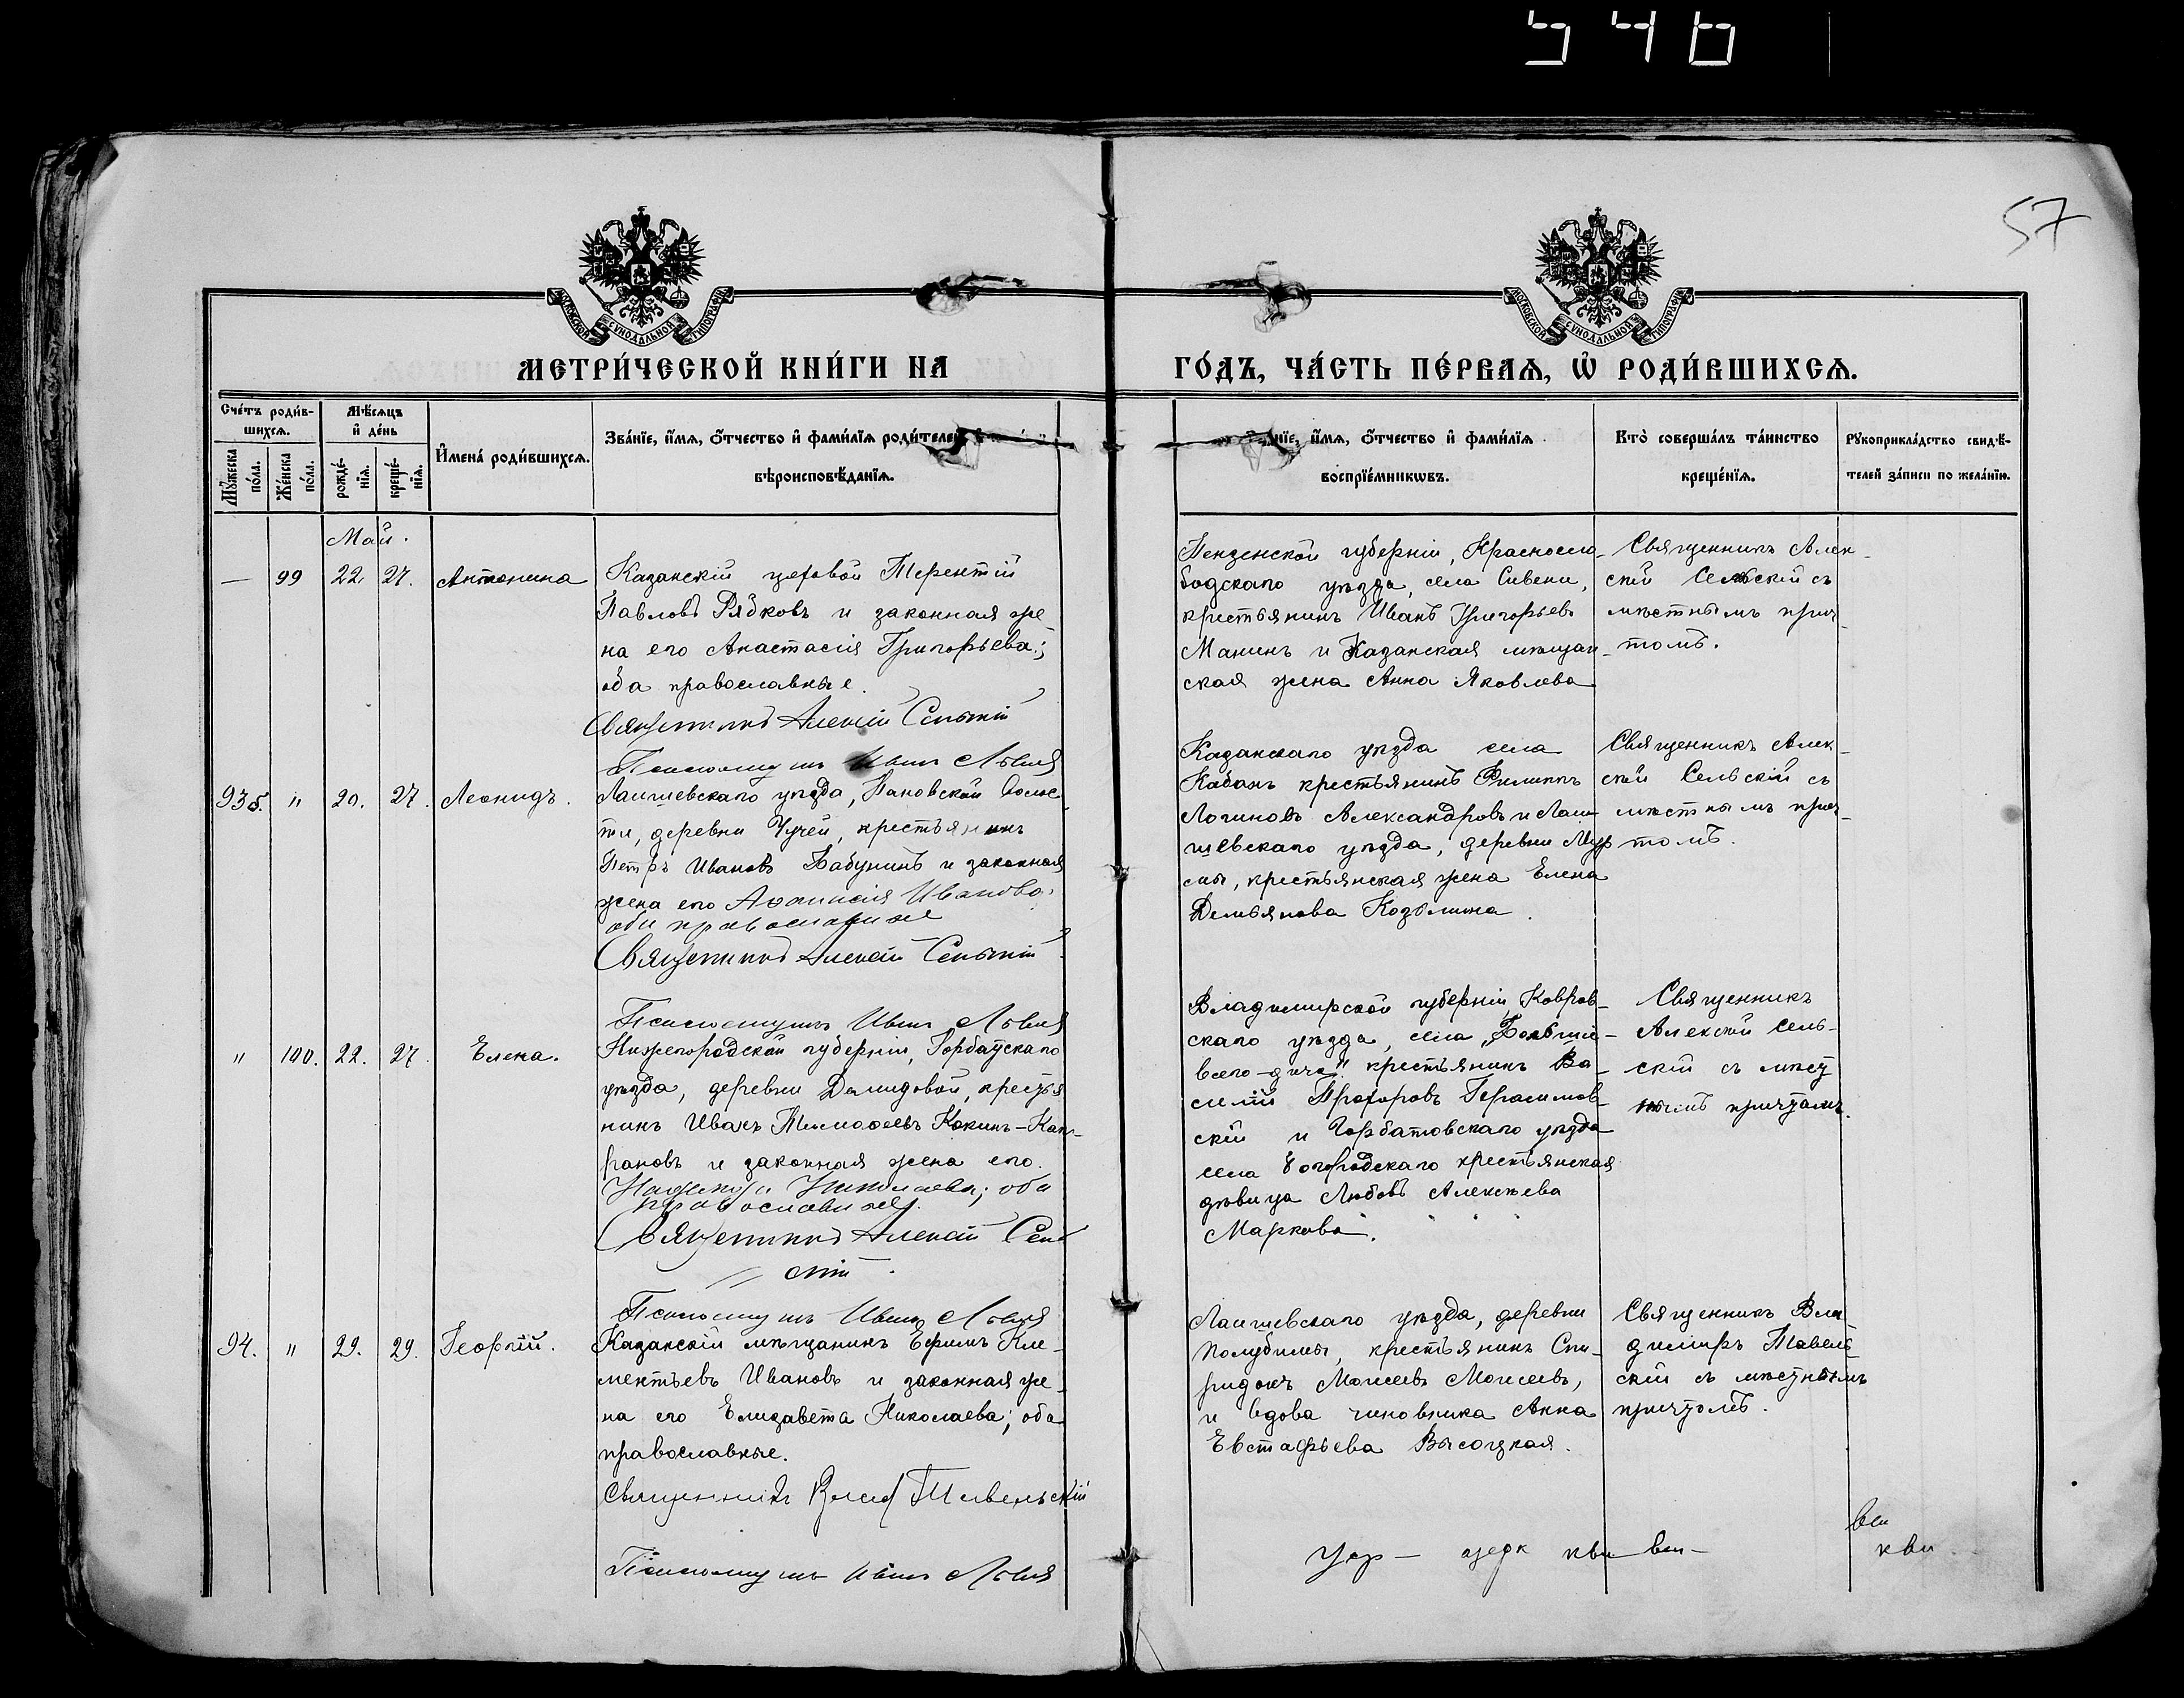 546
57
МОСКОВСКОЙ СѴНОДАЛЬНОЙ ТИПОГРАФІИ
МОСКОВСКОЙ СѴНОДАЛЬНОЙ ТИПОГРАФІИ
МЕТРИ́ЧЕСКОЙ КНИ́ГИ НА ГО́ДЪ, ЧА́СТЬ ПЕ́РВАѦ, Ѡ҆ РОДИ́ВШИХСѦ.
Сче́тъ роди́в-
шихсѧ.
Мꙋ́жеска по́ла.
Же́нска по́ла.
Мѣ́сѧцъ
и҆ де́нь
рожде́-
нїѧ.
креще́-
нїѧ.
И҆мена̀ роди́вшихсѧ.
Зва́нїе, и҆́мѧ, ѻ҆́тчество и҆ фами́лїѧ роди́телей
вѣроисповѣ́данїѧ.
и҆́мѧ, ѻ҆́тчество и҆ фами́лїѧ
воспрїе́мникѡвъ.
Кто̀ соверша́лъ та́инство
креще́нїѧ.
Рꙋкоприкла́дство свидѣ́-
телей за́писи по жела́нїю.
Май.
— 99 22. 27. Антонина
Казанскій цеховой Терентій
Павловъ Рябковъ и законная же-
на его Анастасія Григорьева;
оба православные.
Священникъ Алексій Сельскій
Псаломщикъ Иванъ
Пензенской губерніи, Красносло-
бодскаго уѣзда, села Сивени,
крестьянинъ Иванъ Григорьевъ
Манинъ и Казанская мѣщан-
ская жена Анна Яковлева
Священникъ Алек-
сій Сельскій съ
мѣстнымъ прич-
томъ.
93 " 20. 27. Леонидъ.
Лаишевскаго уѣзда, Пановской волос
ти, деревни Чучей, крестьянинъ
Петръ Ивановъ Бабунинъ и законная
жена его Иванова;
оба православные
Священникъ Алексій Сельскій
Псаломщикъ Иванъ
Казанскаго уѣзда села
Кабанъ крестьянинъ Филиппъ
Логиновъ Александровъ и Лаи-
шевскаго уѣзда, деревни
крестьянская жена Елена
Демьянова
Священникъ Алек-
сій Сельскій съ
мѣстнымъ прич-
томъ.
" 100. 22. 27. Елена.
Нижегородской губерніи, Горбатовскаго
уѣзда, деревни Демидовой, крестья
нинъ Иванъ Тимофеевъ Кокинъ-
и законная жена его
Николаева; оба
православные.
Священникъ Алексій Сель
скій.
Псаломщикъ Иванъ
Владимирской губерніи, Ковров-
скаго уѣзда, села
крестьянинъ Ва-
силій Прохоровъ Герасимов-
скій и Горбатовскаго уѣзда
села Богородскаго крестьянская
дѣвица Любовь Алексѣева
Маркова.
Священникъ
Алексій Сель-
скій съ мѣст
нымъ причтомъ.
94. " 29. 29. Георгій.
Казанскій мѣщанинъ Ефимъ Кле-
ментьевъ Ивановъ и законная же-
на его Елизавета Николаева; оба
православные.
Священникъ Влад Тавельскій
Псаломщикъ Иванъ
Лаишевскаго уѣзда, деревни
крестьянинъ Спи-
ридонъ Моисеевъ Моисеевъ,
и вдова чиновника Анна
Евстафьева Высоцкая.
Священникъ Вла
диміръ Тавель
скій съ мѣстнымъ
причтомъ.